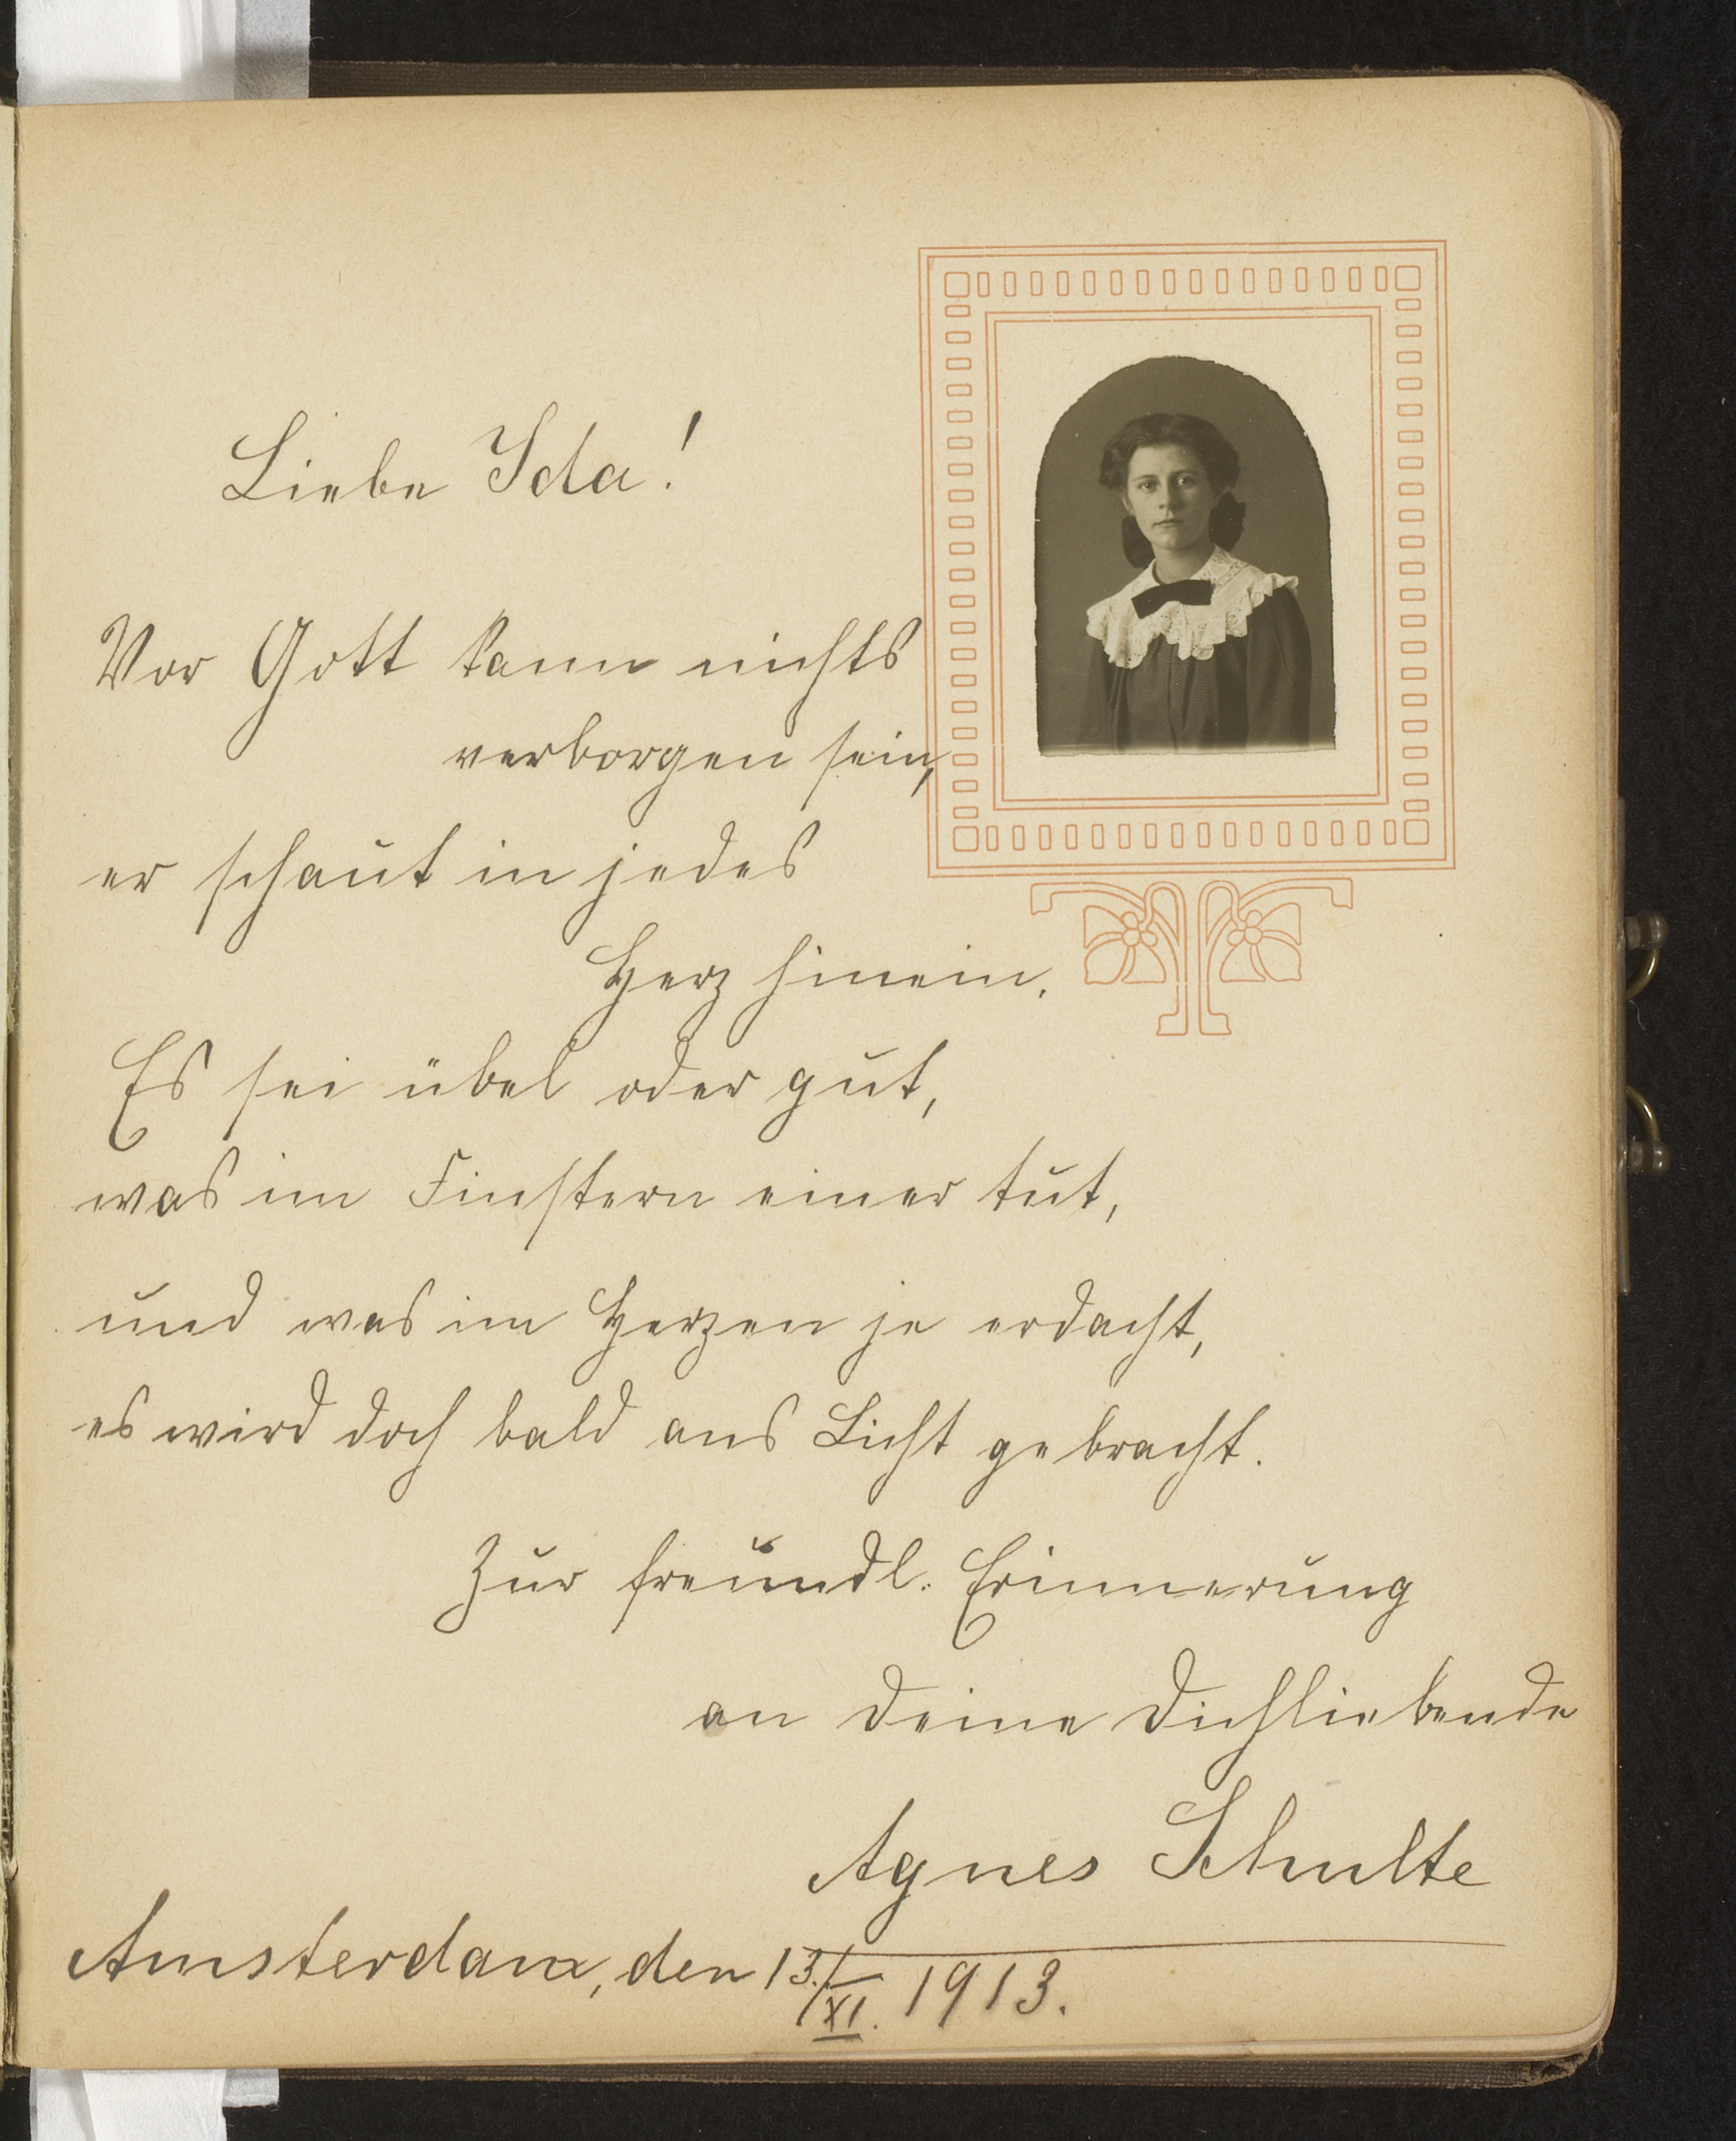 Liebe Ida!
Vor Gott kann nichts
verborgen sein,
er schaut in jedes
Herz hinein.
Es sei übel oder gut,
was im Finstern einer tut,
und was im Herzen je erdacht,
es wird doch bald ans Licht gebracht.
Zur freundl. Erinnerung
an Deine Dichliebende
Agnes Schulte
Amsterdam, den 13./XI. 1913.